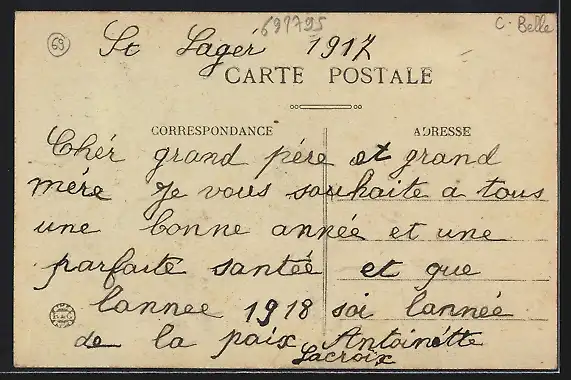 691795
C. Belle
69
St Lagér 1917
CARTE POSTALE
CORRESPONDANCE
ADRESSE
Chér grand pére et grand
mére Je vous souhaite a tous
une bonne année et une
parfaite santée et que
lannee 1918 soi lannée
de la paix Antoinétte
Lacroix